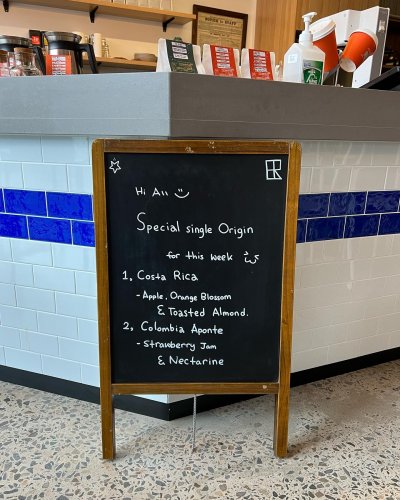 Hi All
Special single Origin
for this week
1, Costa Rica
- Apple, Orange Blossom
& Toasted Almond.
2, Colombia Aponte
- Strawberry Jam
& Nectarine